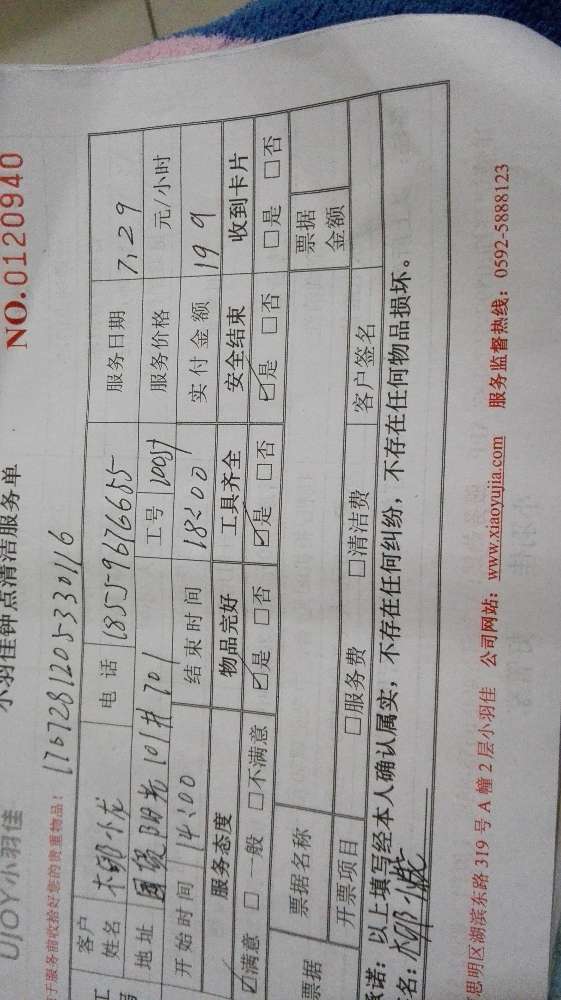 UJOY小羽佳 小羽佳钟点清洁服务单 NO.0120940
于服务前收拾好您的贵重物品！
客户姓名 电话 服务日期 7.29
地址 国贸阳光101# 701 工号 服务价格 元/小时
开始时间 14:00 结束时间 18:00 实付金额 199
服务态度 物品完好 工具齐全 安全结束 收到卡片
☑满意 □一般 □不满意 ☑是 □否 ☑是 □否 ☑是 □否 □是 □否
票据 票据名称 票据金额
开票项目 □服务费 □清洁费 客户签名
承诺：以上填写经本人确认属实，不存在任何纠纷，不存在任何物品损坏。
名：
思明区湖滨东路319号A幢2层小羽佳 公司网站：www.xiaoyujia.com 服务监督热线：0592-5888123